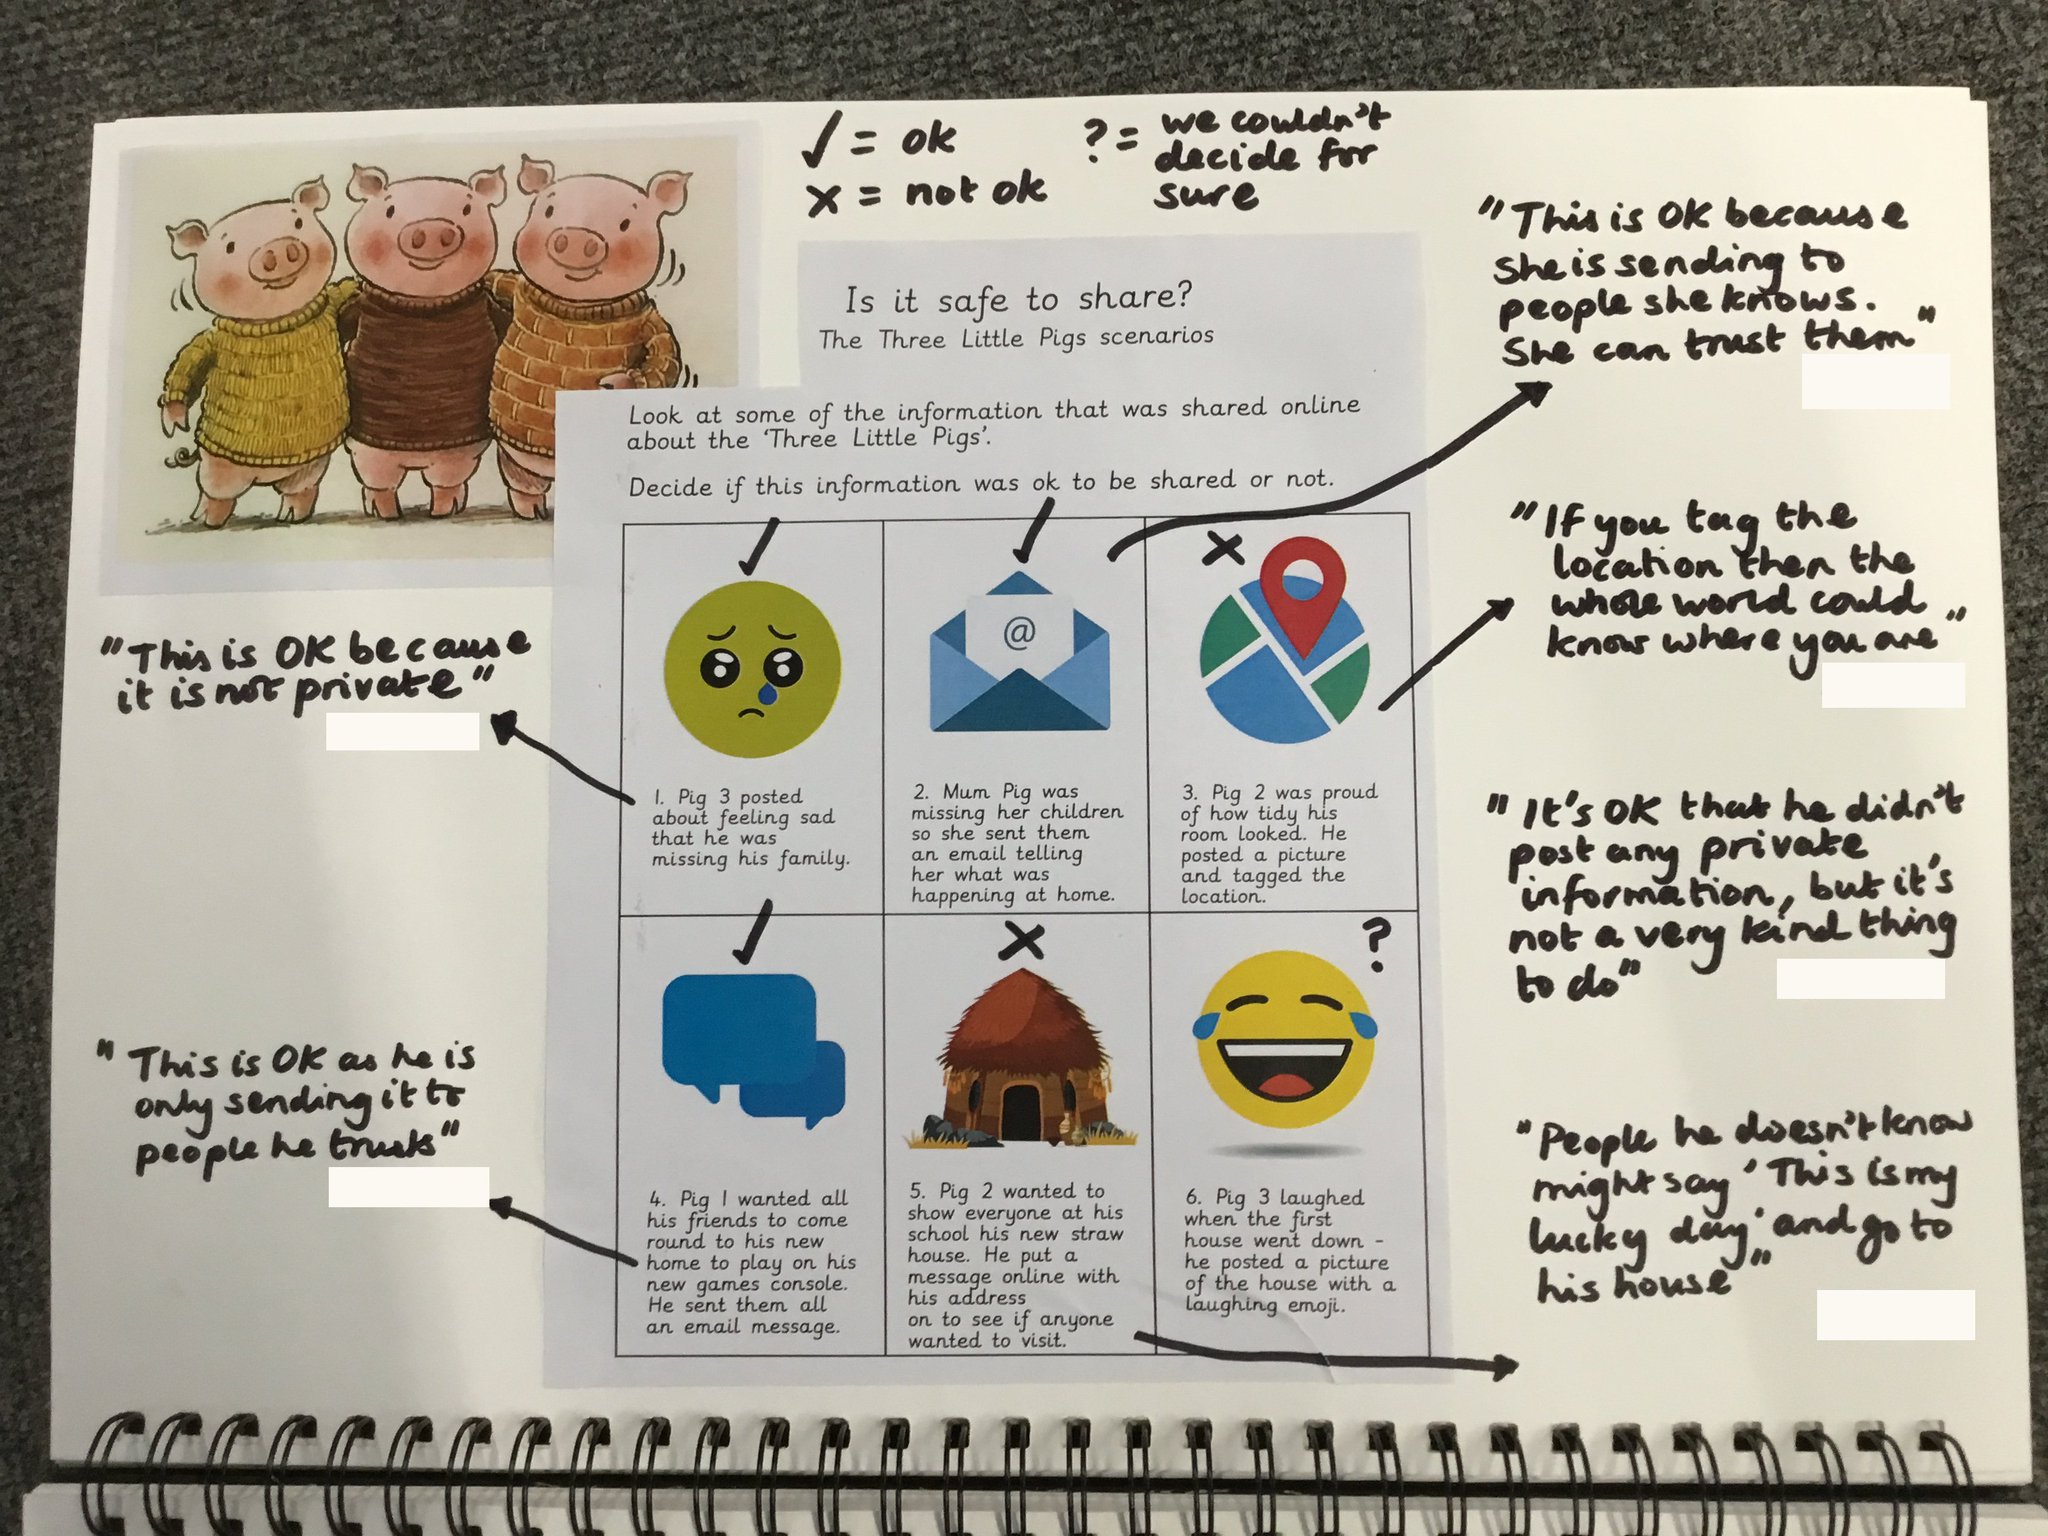 ✓ = ok
x = not ok
? = we couldn't
decide for
sure
Is it safe to share?
The Three Little Pigs scenarios
Look at some of the information that was shared online
about the 'Three Little Pigs'.
Decide if this information was ok to be shared or not.
✓
✓
x
@
1. Pig 3 posted
about feeling sad
that he was
missing his family.
2. Mum Pig was
missing her children
so she sent them
an email telling
her what was
happening at home.
3. Pig 2 was proud
of how tidy his
room looked. He
posted a picture
and tagged the
location.
✓
x
?
4. Pig 1 wanted all
his friends to come
round to his new
home to play on his
new games console.
He sent them all
an email message.
5. Pig 2 wanted to
show everyone at his
school his new straw
house. He put a
message online with
his address
on to see if anyone
wanted to visit.
6. Pig 3 laughed
when the first
house went down -
he posted a picture
of the house with a
laughing emoji.
"This is OK because
it is not private"
"This is OK as he is
only sending it to
people he trusts"
"This is OK because
she is sending to
people she knows.
She can trust them"
"If you tag the
location then the
whole world could
know where you are"
"It's OK that he didn't
post any private
information, but it's
not a very kind thing
to do"
"People he doesn't know
might say 'This is my
lucky day' and go to
his house"